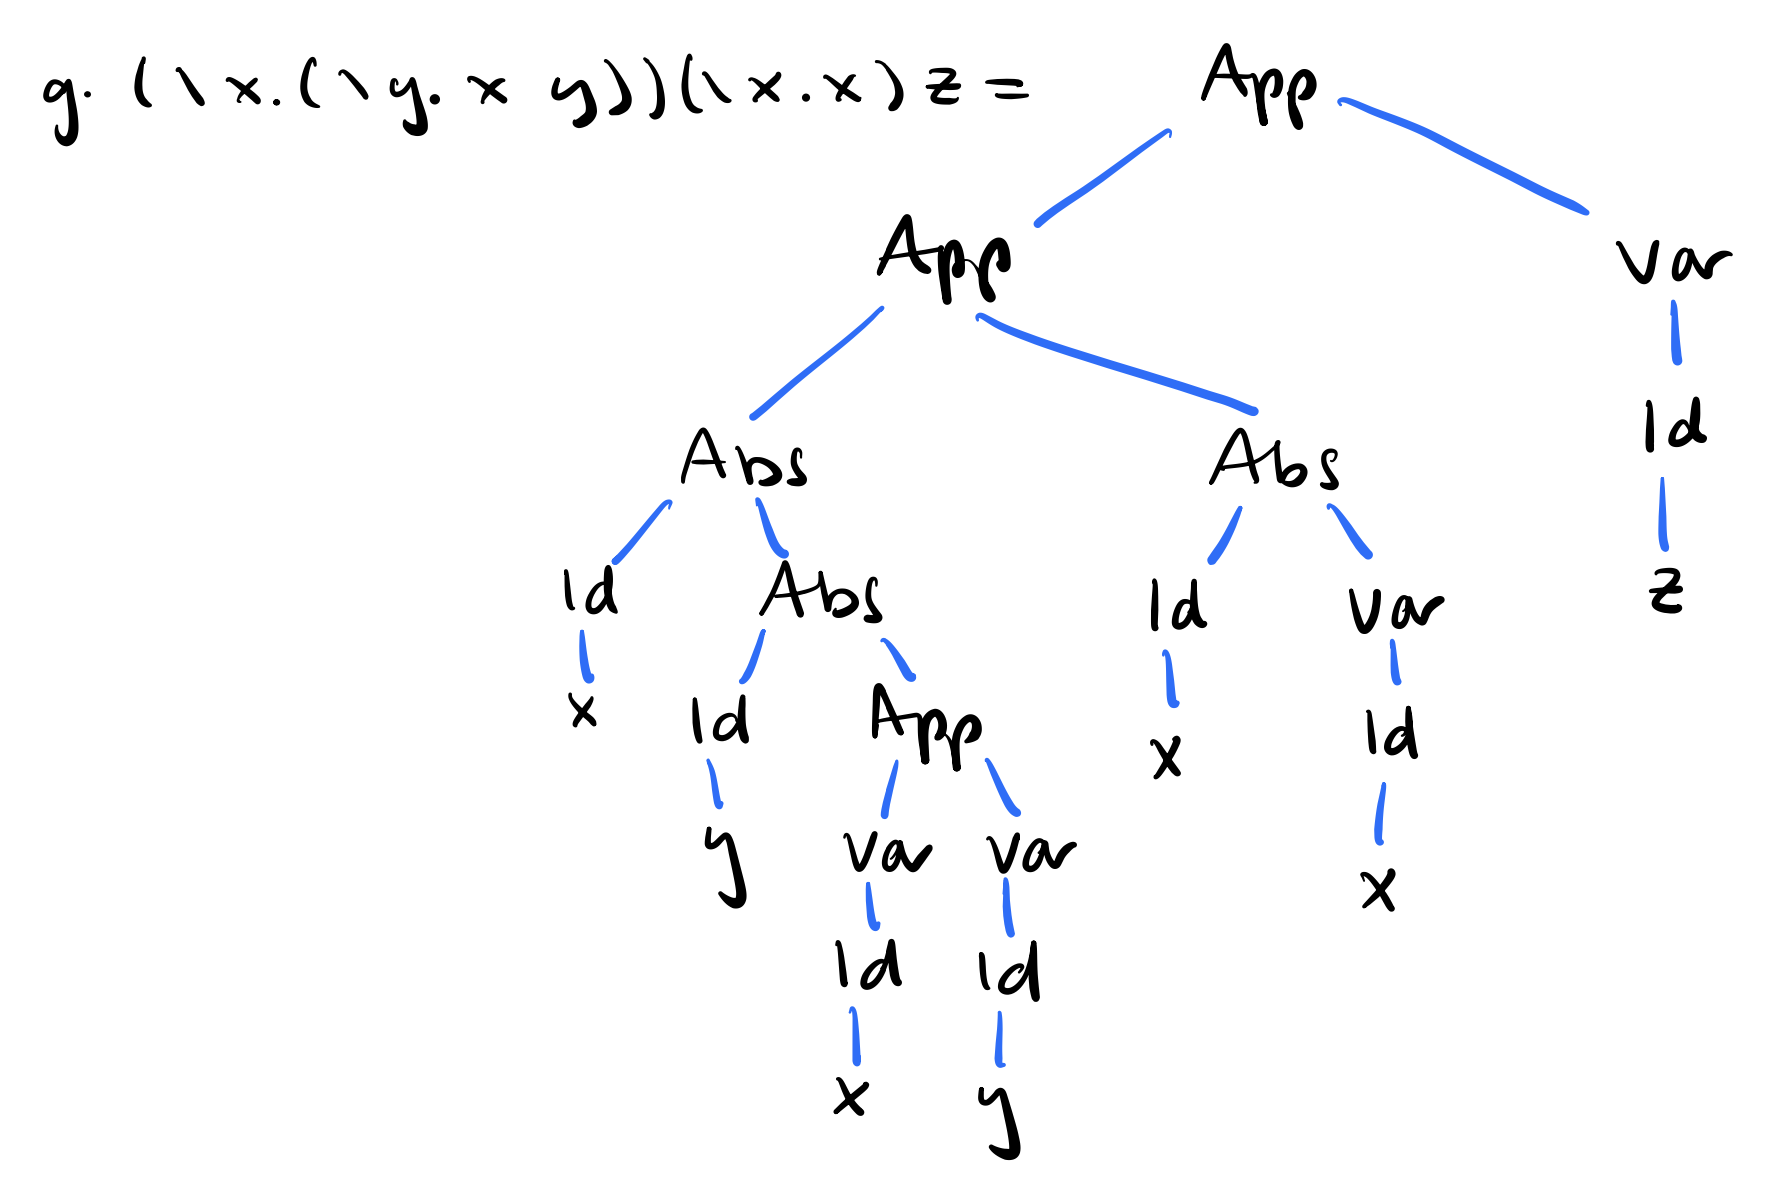 g. (\x.(\y.x y))(\x.x)z = App
App Var
Id
Abs Abs
Id Abs Id Var z
x Id App x Id
y Var Var x
Id Id
x y